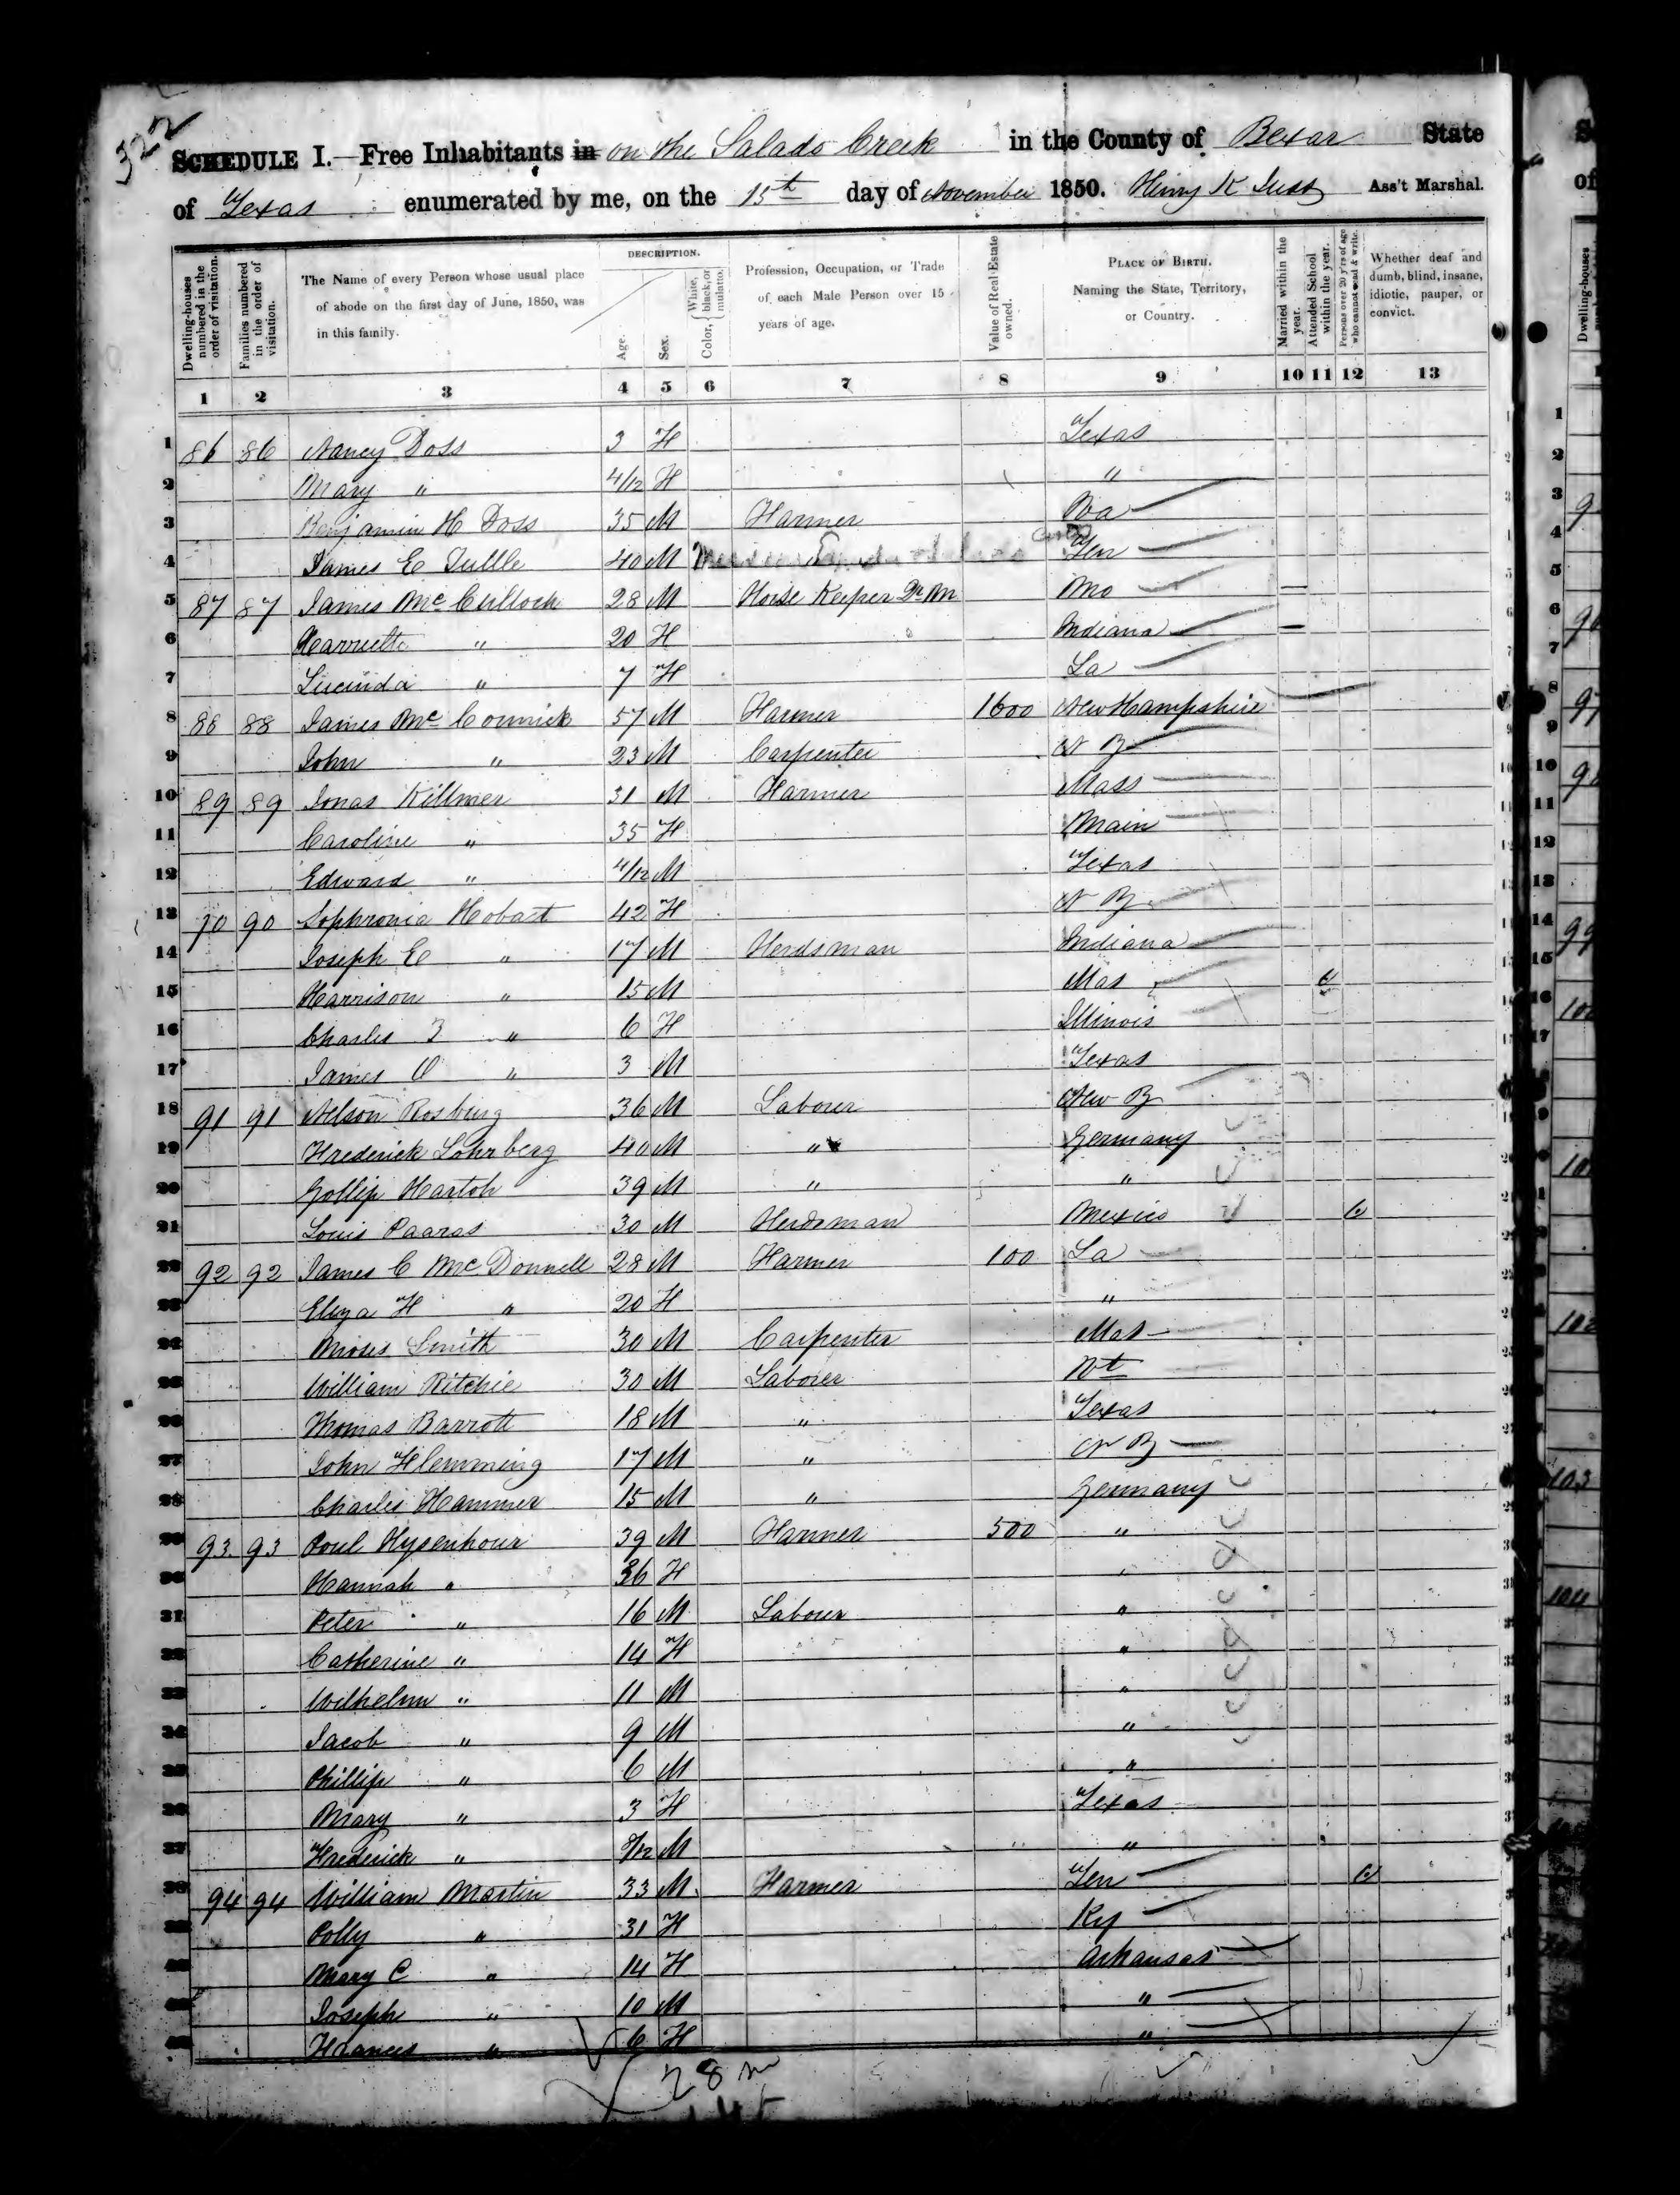 322
SCHEDULE I.—Free Inhabitants in on the Salado Creek in the County of Bexar State
of Texas enumerated by me, on the 15th day of November 1850. Henry K Judd Ass't Marshal.
Dwelling-houses numbered in the order of visitation.
Families numbered in the order of visitation.
The Name of every Person whose usual place of abode on the first day of June, 1850, was in this family.
DESCRIPTION.
Age.
Sex.
Color, { White, black, or mulatto.
Profession, Occupation, or Trade of each Male Person over 15 years of age.
Value of Real Estate owned.
PLACE OF BIRTH. Naming the State, Territory, or Country.
Married within the year.
Attended School within the year.
Persons over 20 y'rs of age who cannot read & write.
Whether deaf and dumb, blind, insane, idiotic, pauper, or convict.
1 2 3 4 5 6 7 8 9 10 11 12 13
1 86 86 Nancy Doss 3 F Texas
2 Mary " 4/12 F "
3 Benjamin H Doss 35 M Farmer Va
4 James E Tuttle 40 M Ten
5 87 87 James McCulloch 28 M Horse Keeper Qr M Mo —
6 Harriette " 20 F Indiana —
7 Lucinda " 7 F La
8 88 88 James McCormick 57 M Farmer 1600 New Hampshire
9 John " 23 M Carpenter N Y
10 89 89 Jonas Killmer 31 M Farmer Mass
11 Caroline " 35 F Main
12 Edward " 4/12 M Texas
13 90 90 Sophronia Hobart 42 F N Y
14 Joseph E " 17 M Herdsman Indiana
15 Harrison " 15 M Mas
16 Charles F " 6 F Illinois
17 James O " 3 M Texas
18 91 91 Nelson Rosburg 36 M Laborer New Y
19 Frederick Lohrberg 40 M " Germany
20 Gollip Hartoh 39 M " "
21 Louis Paaras 30 M Herdsman Mexico
22 92 92 James C McDonnell 28 M Farmer 100 La
23 Eliza F " 20 F "
24 Moses Smith 30 M Carpenter Mas
25 William Ritchie 30 M Laborer Vt
26 Thomas Barrott 18 M " Texas
27 John Flemming 17 M " N Y
28 Charles Hammer 15 M " Germany
29 93 93 Poul Hysenhour 39 M Farmer 500 "
30 Hannah " 36 F "
31 Peter " 16 M Laborer "
32 Catherine " 14 F "
33 Wilhelm " 11 M "
34 Jacob " 9 M "
35 Phillip " 6 M "
36 Mary " 3 F Texas
37 Frederick " 8/12 M "
38 94 94 William Martin 33 M Farmer Ten
39 Polly " 31 F Ky
40 Mary C " 14 F Arkansas
41 Joseph " 10 M "
42 Frances " 6 F "
28 m